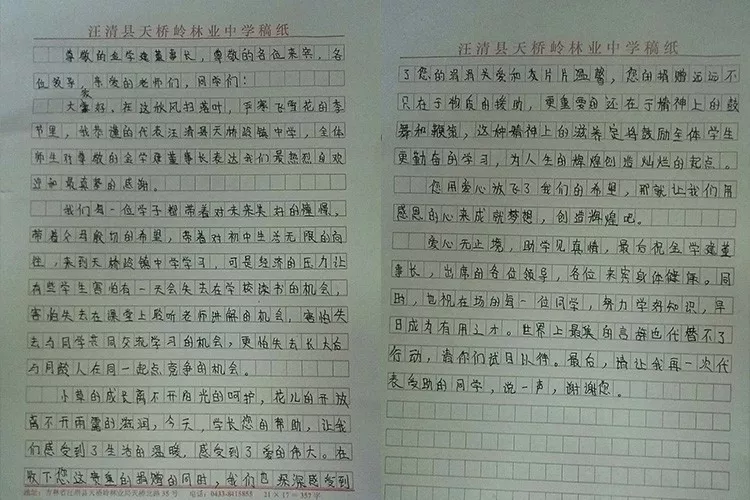 汪清县天桥岭林业中学稿纸
尊敬的金学建董事长，尊敬的各位来宾，各
位领导，亲爱的老师们，同学们：
大家好，在这秋风扫落叶，严寒飞雪花的季
节里，我恭谨的代表汪清县天桥岭镇中学，全体
师生对尊敬的金学建董事长表达我们最热烈的欢
迎和最真挚的感谢。
我们每一位学子都带着对未来美好的憧憬，
带着父母殷切的希望，带着对初中生活无限的向
往，来到天桥岭镇中学学习，可是经济的压力让
有些学生害怕有一天会失去在学校读书的机会，
害怕失去在课堂上聆听老师讲解的机会，害怕失
去与同学共同交流学习的机会，更怕失去长大后
与同龄人在同一起点竞争的机会。
小草的成长离不开阳光的呵护，花儿的开放
离不开雨露的滋润，今天，学长您的帮助，让我
们感受到了生活的温暖，感受到了爱的伟大。在
收下您这贵重的捐赠的同时，我们也深深感受到
地址：吉林省汪清县天桥岭林业局天桥北路35号 电话：0433-8415853 21×17＝357字
汪清县天桥岭林业中学稿纸
了您的涓涓关爱和友片片温馨，您的捐赠远远不
只在于物质的援助，更重要的还在于精神上的鼓
舞和鞭策，这种精神上的滋养定将鼓励全体学生
更勤奋的学习，为人生的辉煌创造灿烂的起点。
您用爱心放飞了我们的希望，那就让我们用
感恩的心来成就梦想，创造辉煌吧。
爱心无止境，助学见真情，最后祝金学建董
事长，出席的各位领导，各位来宾身体健康。同
时，也祝在场的每一位同学，努力学习知识，早
日成为有用之才。世界上最美的言辞也代替不了
行动，请你们拭目以待。最后，请让我再一次代
表受助的同学，说一声，谢谢您。